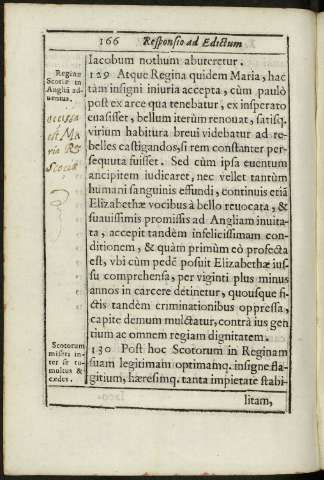 166 Responsio ad Edictum
Iacobum nothum abuteretur.
Reginæ
Scotiæ in
Angliã ad-
uentus.
occissa
est Ma
ria Rª
Scociæ
129 Atque Regina quidem Maria, hac
tàm insigni iniuria accepta, cùm paulò
post ex arce qua tenebatur, ex insperato
euasisset, bellum iterùm renouat, satisq.
virium habitura breui videbatur ad re-
belles castigandos, si rem constanter per-
sequuta fuisset. Sed cùm ipsa euentum
ancipitem iudicaret, nec vellet tantùm
humani sanguinis effundi, continuis etiã
Elizabethæ vocibus à bello reuocata, &
suauissimis promissis ad Angliam inuita-
ta, accepit tandèm infelicissimam con-
ditionem, & quàm primùm eò profecta
est, vbi cùm pedẽ posuit Elizabethæ ius-
su comprehensa, per viginti plus minus
annos in carcere detinetur, quousque fi-
ctis tandèm criminationibus oppressa,
capite demum mulctatur, contrà ius gen
tium ac omnem regiam dignitatem.
Scotorum
miseri in-
ter se tu-
multus &
cædes.
130 Post hoc Scotorum in Reginam
suam legitimam optimamq. insigne fla-
gitium, hæresimq. tanta impietate stabi-
litam,